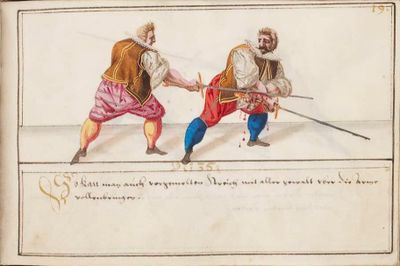 19
35
So Kan man auch vorgemelten Streich mit aller gewalt vber die Arme
vollenbringen.